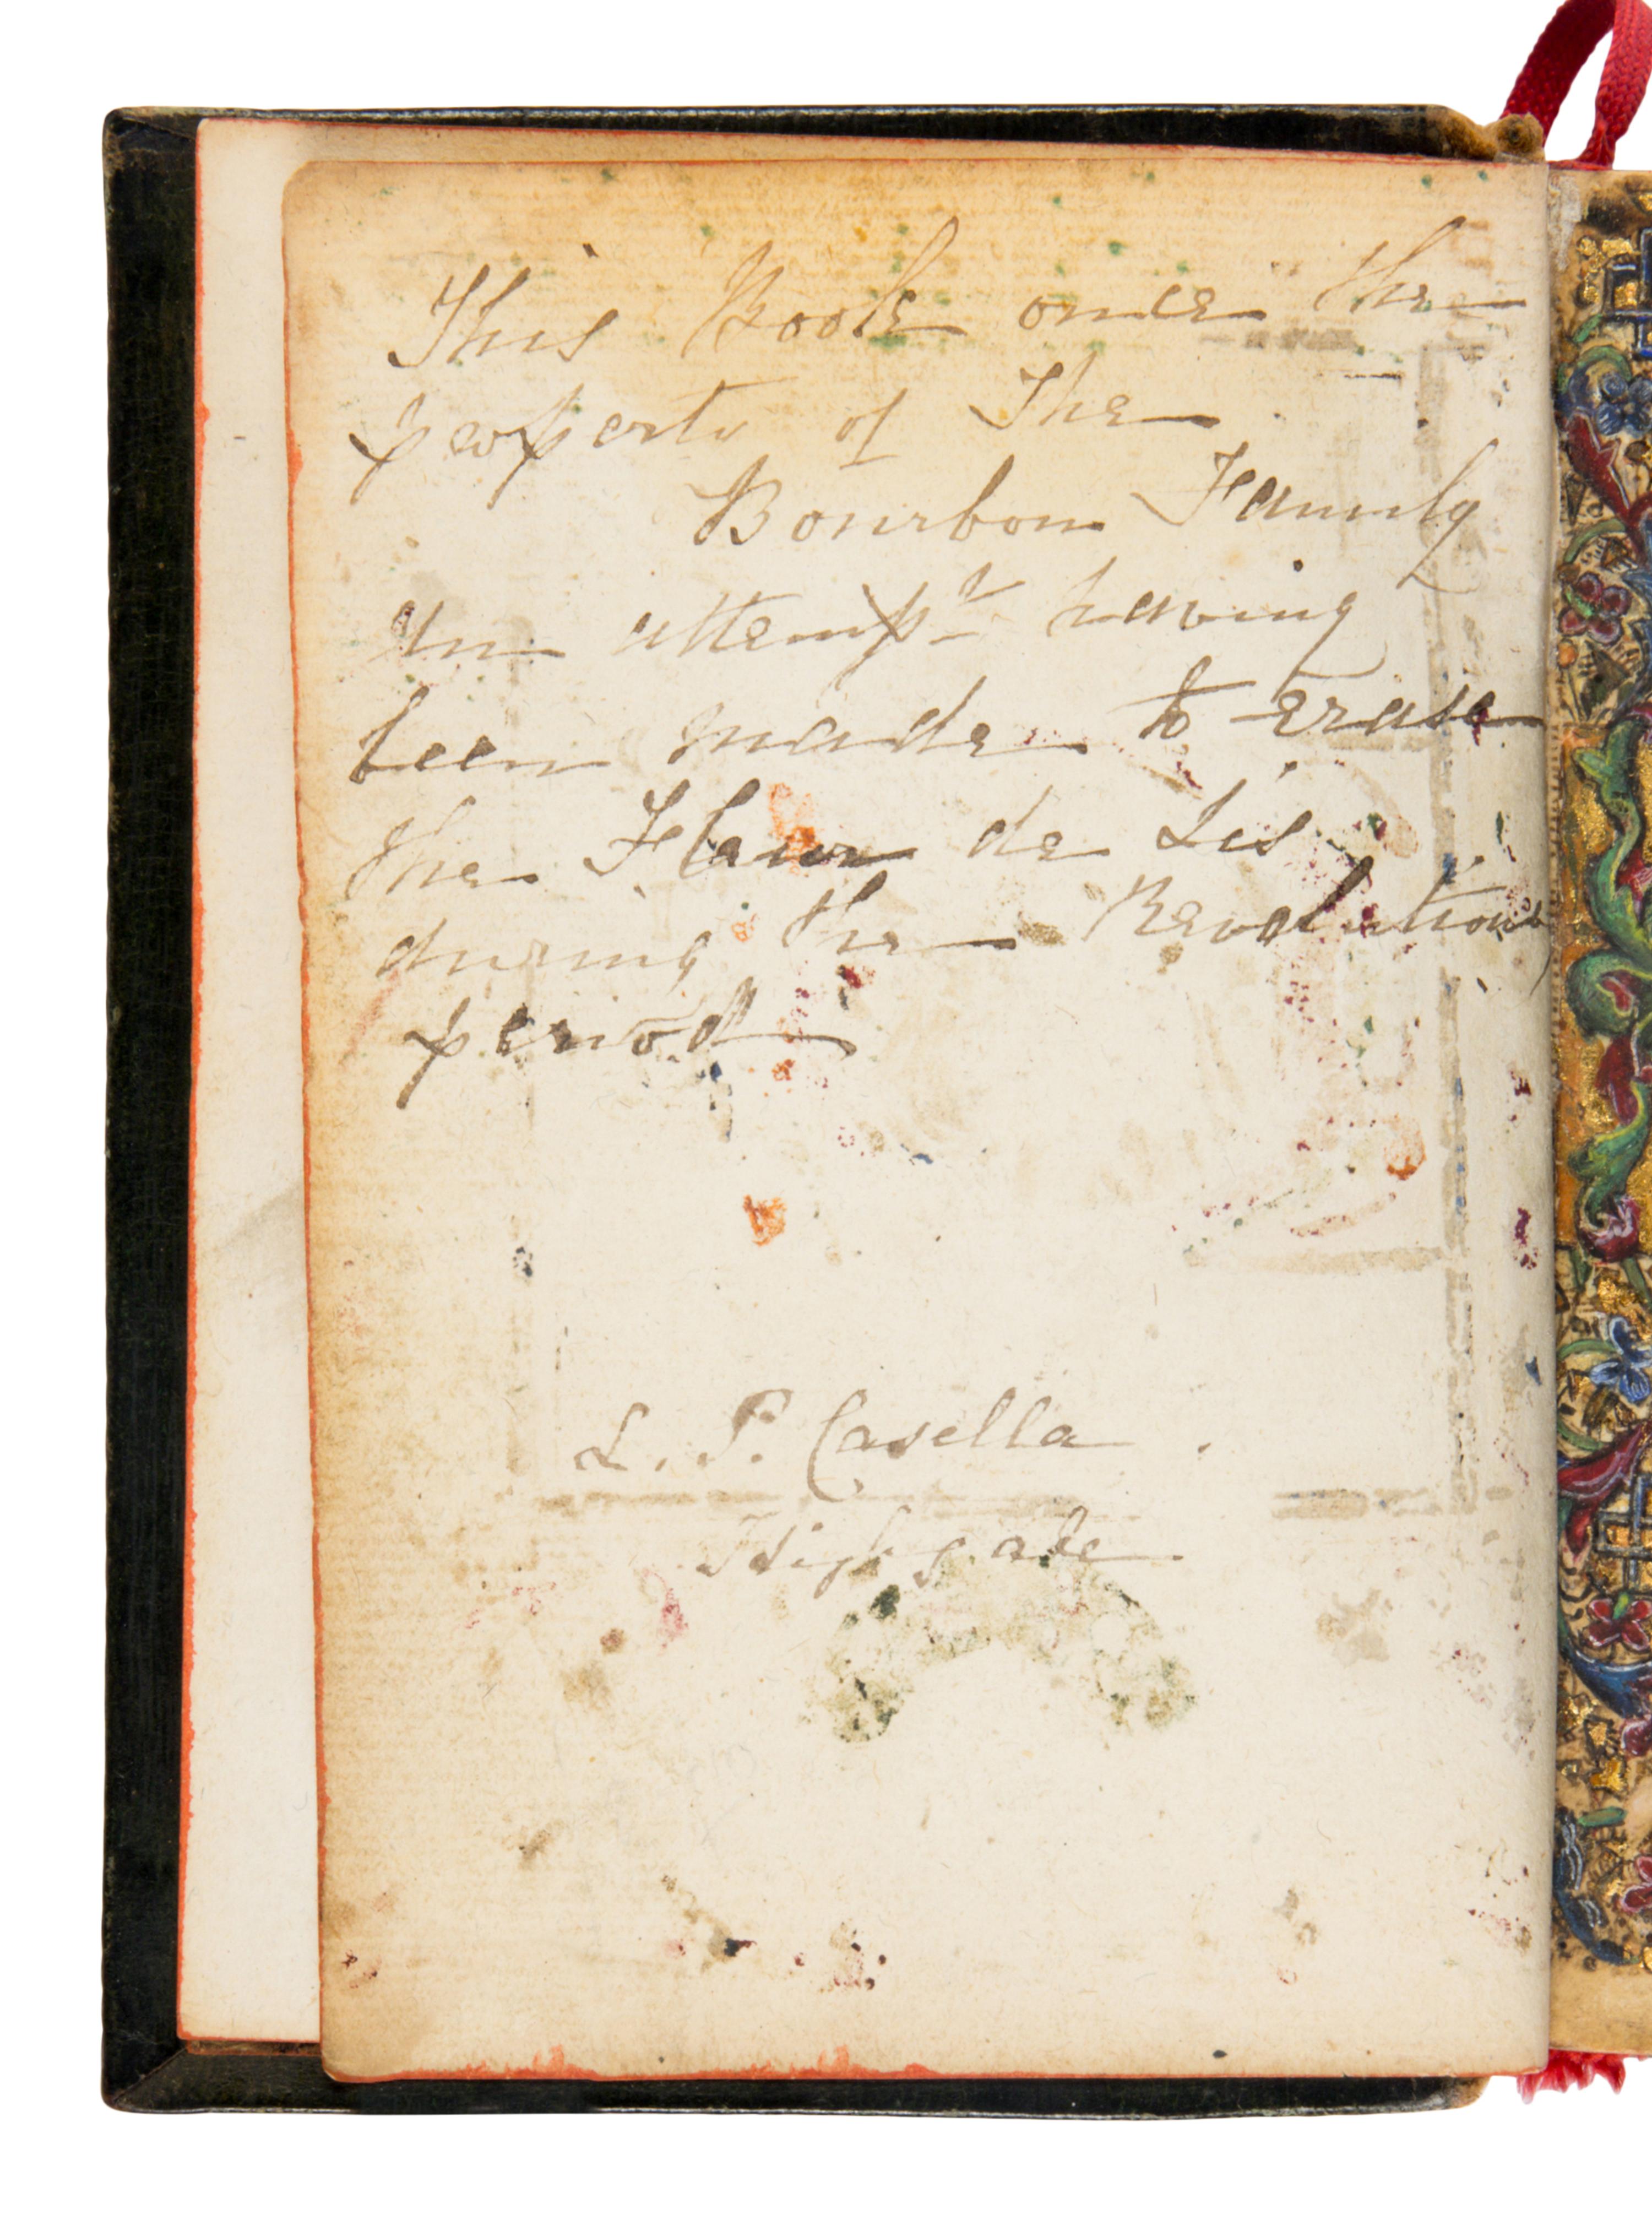 This Book once the
property of The
Bourbon Family
An attempt having
been made to erase
the Fleur de Lis
during the Revolution
period
L. P. Casella
Highgate